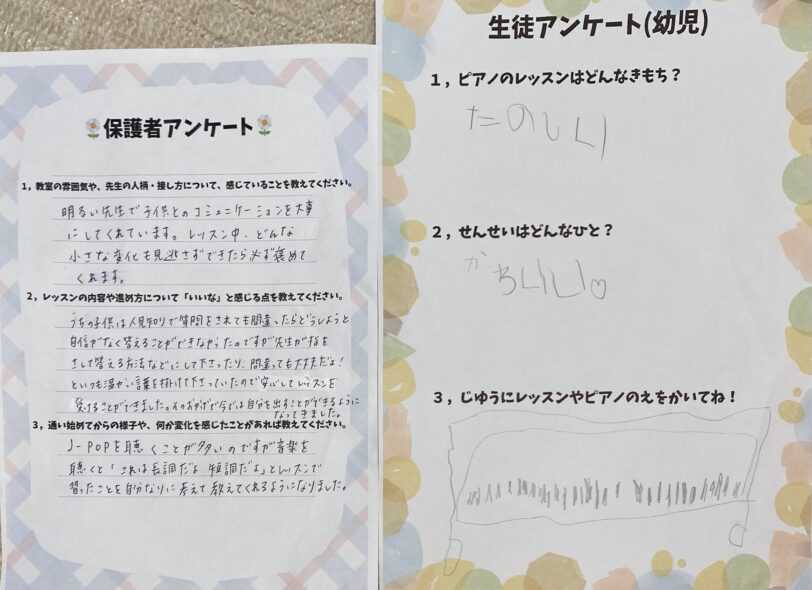 保護者アンケート
1，教室の雰囲気や、先生の人柄・接し方について、感じていることを教えてください。
明るい先生で子供とのコミュニケーションを大事
にしてくれています。レッスン中、どんな
小さな変化も見逃さずできたら必ず褒めて
くれます。
2，レッスンの内容や進め方について「いいな」と感じる点を教えてください。
うちの子供は人見知りで質問をされても間違ったらどうしようと
自信がなく答えることができなかったのですが先生が指を
さして答える方法などにして下さったり、間違っても大丈夫だよ!
といつも温かい言葉を掛けて下さっていたので安心してレッスンを
受けることができました。そのおかげで今では自分を出すことができるように
なってきました。
3，通い始めてからの様子や、何か変化を感じたことがあれば教えてください。
J-POPを聴くことが多いのですが音楽を
聴くと「これは長調だよ 短調だよ」とレッスンで
習ったことを自分なりに考えて教えてくれるようになりました。
生徒アンケート(幼児)
1，ピアノのレッスンはどんなきもち？
たのしい
2，せんせいはどんなひと？
かわいい♡
3，じゆうにレッスンやピアノのえをかいてね！